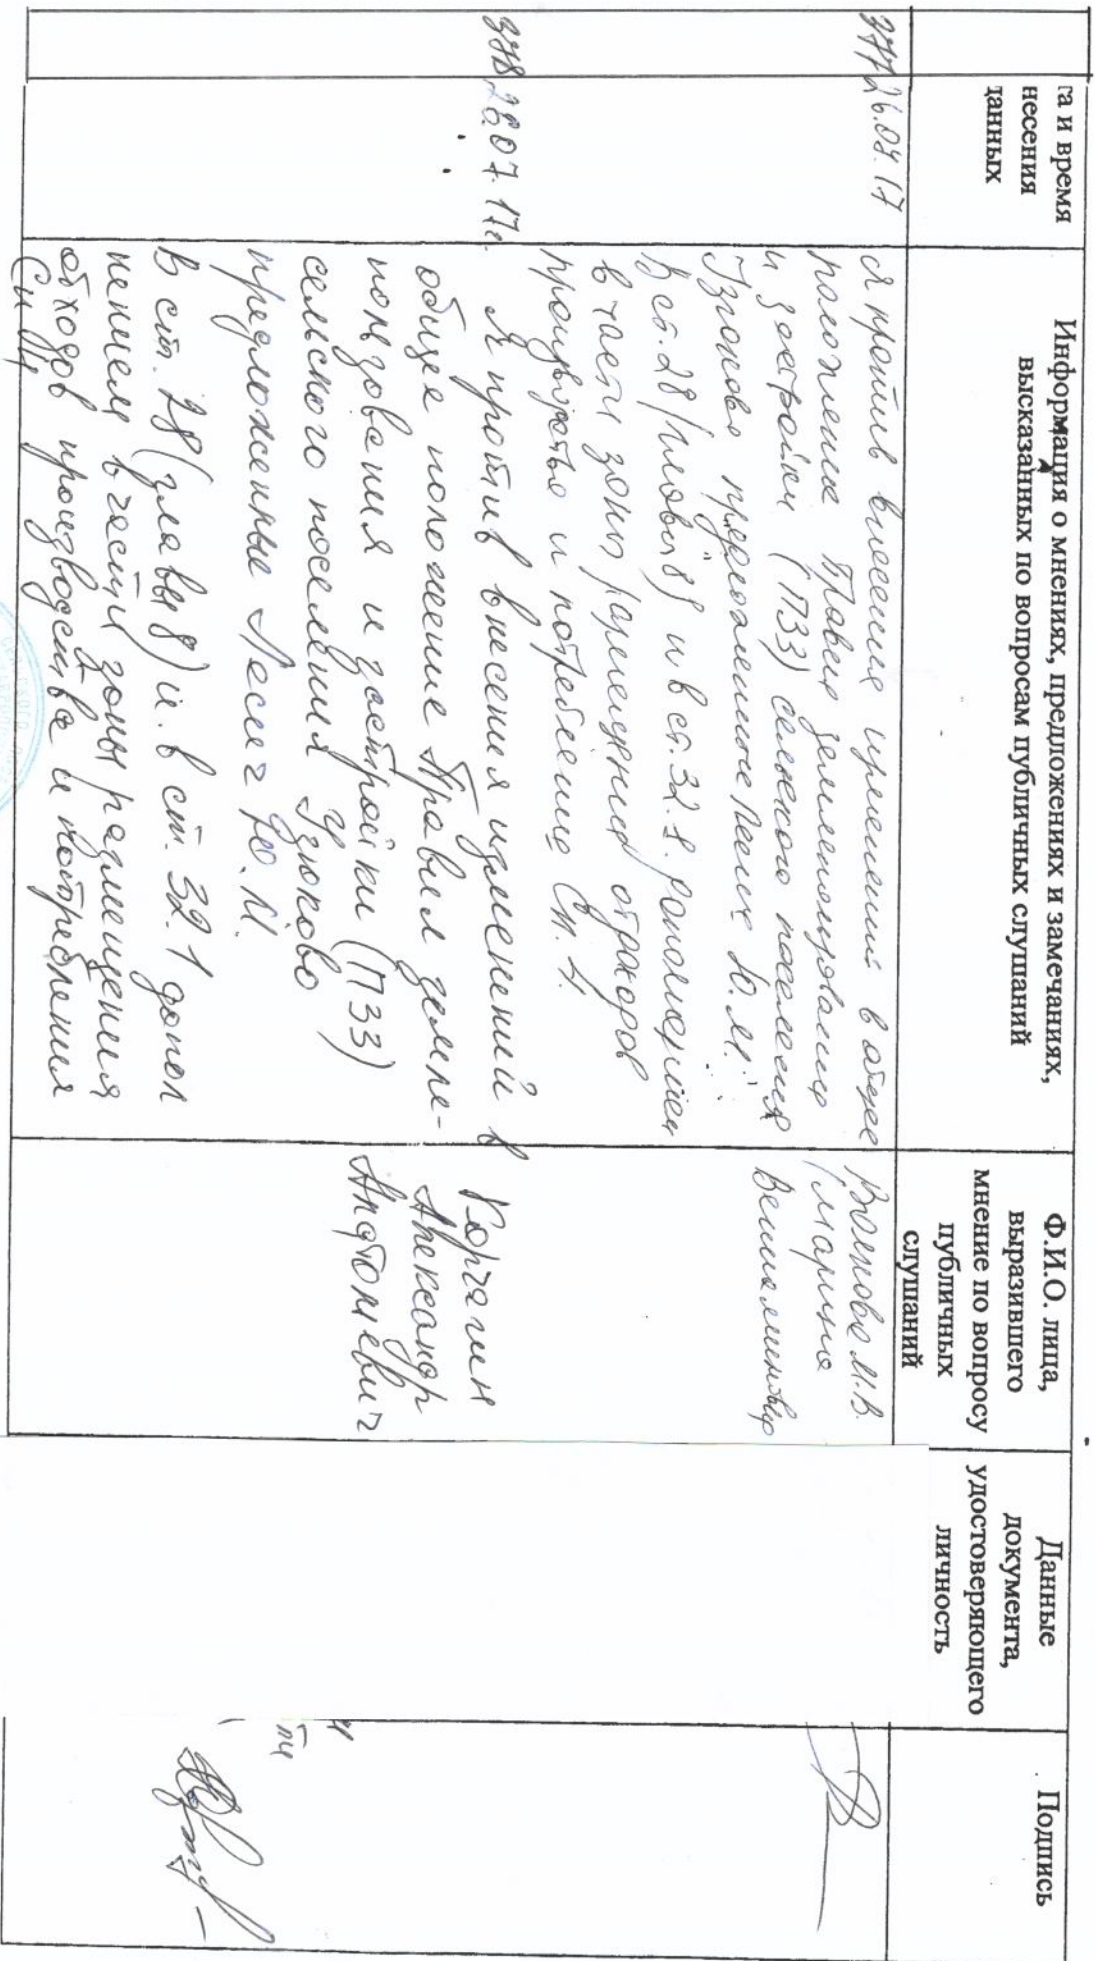 та и время
несения
данных
Информация о мнениях, предложениях и замечаниях,
высказанных по вопросам публичных слушаний
Ф.И.О. лица,
выразившего
мнение по вопросу
публичных
слушаний
Данные
документа,
удостоверяющего
личность
Подпись
377 26.07.17
Я против внесения изменений в общее
положение Правил землепользования
и застройки (ПЗЗ) сельского поселения
Узюково предложенное Лесик Ю.М.
В ст. 28 (главы 8) и в ст. 32.1. дополнением
в части зоны размещения отходов
производства и потребление Сп.4.
Волкова М.В.
Марина
Вениаминовна
378 26.07.17г.
Я против внесения изменений в
общее положение Правил земле-
пользования и застройки (ПЗЗ)
сельского поселения Узюково
предложенные Лесиг Ю.М.
В ст. 28 (главы 8) и. в ст. 32.1 допол
нением в части зоны размещения
отходов производства и потребления
Сп 04
Корчагин
Александр
Анатольевич